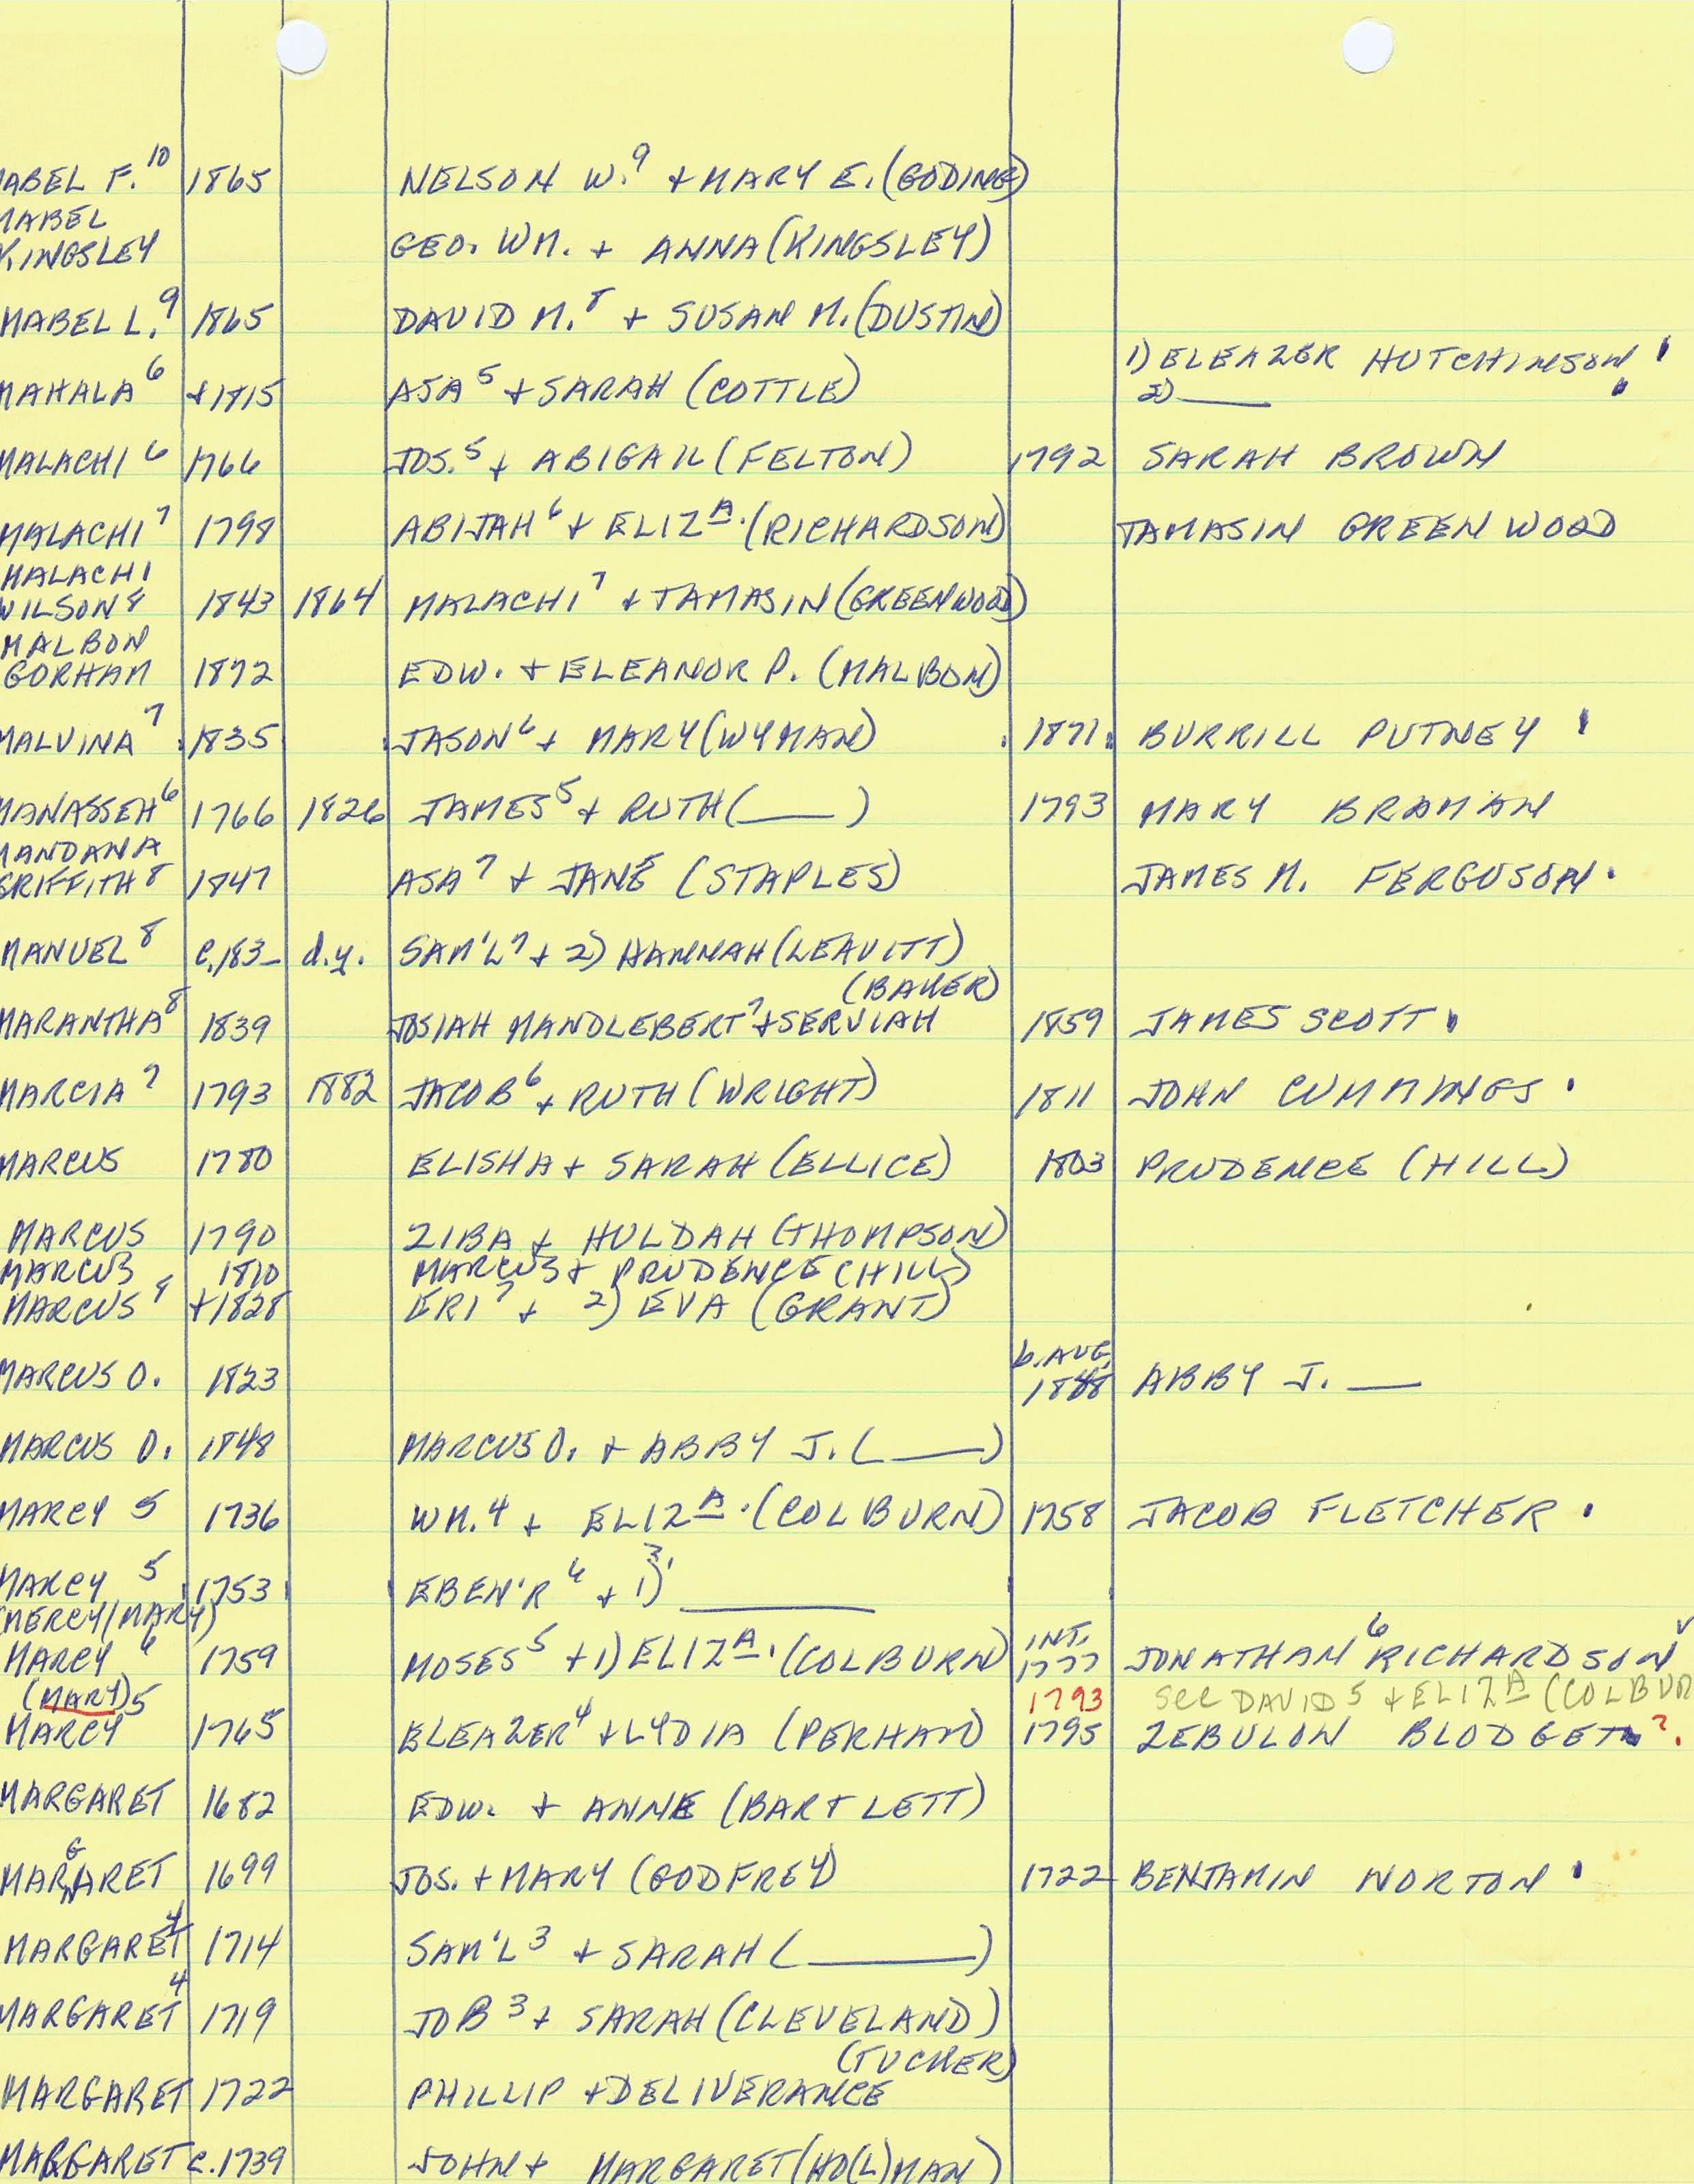 MABEL F.¹⁰ 1865 NELSON W.⁹ + MARY E. (GODING)
MABEL
KINGSLEY GEO. WM. + ANNA (KINGSLEY)
MABEL L.⁹ 1865 DAVID M.⁸ + SUSAN M. (DUSTIN)
1) ELEAZER HUTCHINSON
MAHALA⁶ +1815 ASA⁵ + SARAH (COTTLE) 2) ___
MALACHI⁶ 1766 JOS.⁵ + ABIGAIL (FELTON) 1792 SARAH BROWN
MALACHI⁷ 1798 ABIJAH⁶ + ELIZA. (RICHARDSON) TAMASIN GREENWOOD
MALACHI
WILSON⁸ 1843 1864 MALACHI⁷ + TAMASIN (GREENWOOD)
MALBON
GORHAM 1872 EDW. + ELEANOR P. (MALBON)
MALVINA⁷ 1835 JASON⁶ + MARY (WYMAN) 1871 BURRILL PUTNEY
MANASSEH⁶ 1766 1826 JAMES⁵ + RUTH (___) 1793 MARY BRAMAN
MANDANA
GRIFFITH⁸ 1847 ASA⁷ + JANE (STAPLES) JAMES M. FERGUSON
MANUEL⁸ c.183_ d.y. SAM'L⁷ + 2) HANNAH (LEAVITT)
(BAKER)
MARANTHA⁸ 1839 JOSIAH MANDLEBERT⁷ + SERVIAH 1859 JAMES SCOTT
MARCIA⁷ 1793 1882 JACOB⁶ + RUTH (WRIGHT) 1811 JOHN CUMMINGS
MARCUS 1780 ELISHA + SARAH (ELLICE) 1803 PRUDENCE (HILL)
MARCUS 1790 ZIBA + HULDAH (THOMPSON)
MARCUS 1810 MARCUS + PRUDENCE (HILL)
MARCUS⁸ +1828 ERI⁷ + 2) EVA (GRANT)
b. AUG.
MARCUS O. 1823 1848 ABBY J. ___
MARCUS O. 1848 MARCUS O. + ABBY J. (___)
MARCY 5 1736 WM.⁴ + ELIZA. (COLBURN) 1758 JACOB FLETCHER
MARCY 5 1753 EBEN'R⁴ + 1) ___
(MERCY/MARY)
MARCY⁶ 1759 MOSES⁵ + 1) ELIZA. (COLBURN) INT. 1777 JONATHAN⁶ RICHARDSON
(MARY)5 1793 SEE DAVID⁵ + ELIZA (COLBUR
MARCY 1765 ELEAZER⁴ + LYDIA (PERHAM) 1795 ZEBULON BLODGET ?
MARGARET 1682 EDW. + ANNE (BARTLETT)
MARGARET 1699 JOS. + MARY (GODFREY) 1722 BENJAMIN NORTON
MARGARET⁴ 1714 SAM'L³ + SARAH (___)
MARGARET⁴ 1719 JOB³ + SARAH (CLEVELAND)
(TUCKER)
MARGARET 1722 PHILLIP + DELIVERANCE
MARGARET c.1739 JOHN + MARGARET (HO(L)MAN)